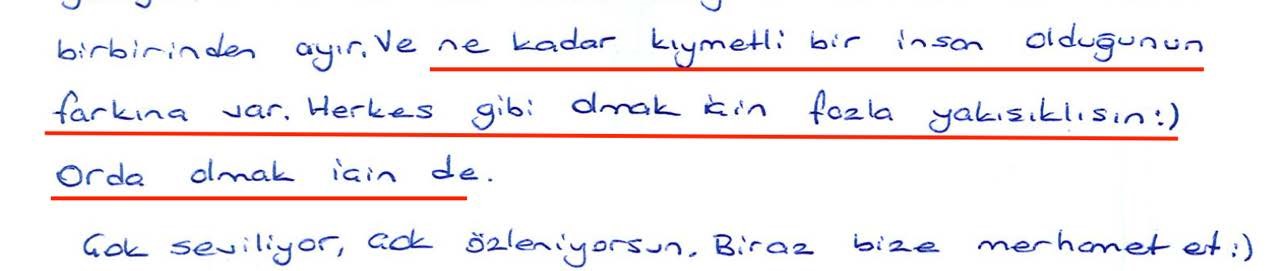 birbirinden ayır. Ve ne kadar kıymetli bir insan olduğunun
farkına var. Herkes gibi olmak için fazla yakışıklısın:)
Orda olmak için de.
Çok seviliyor, çok özleniyorsun. Biraz bize merhamet et:)